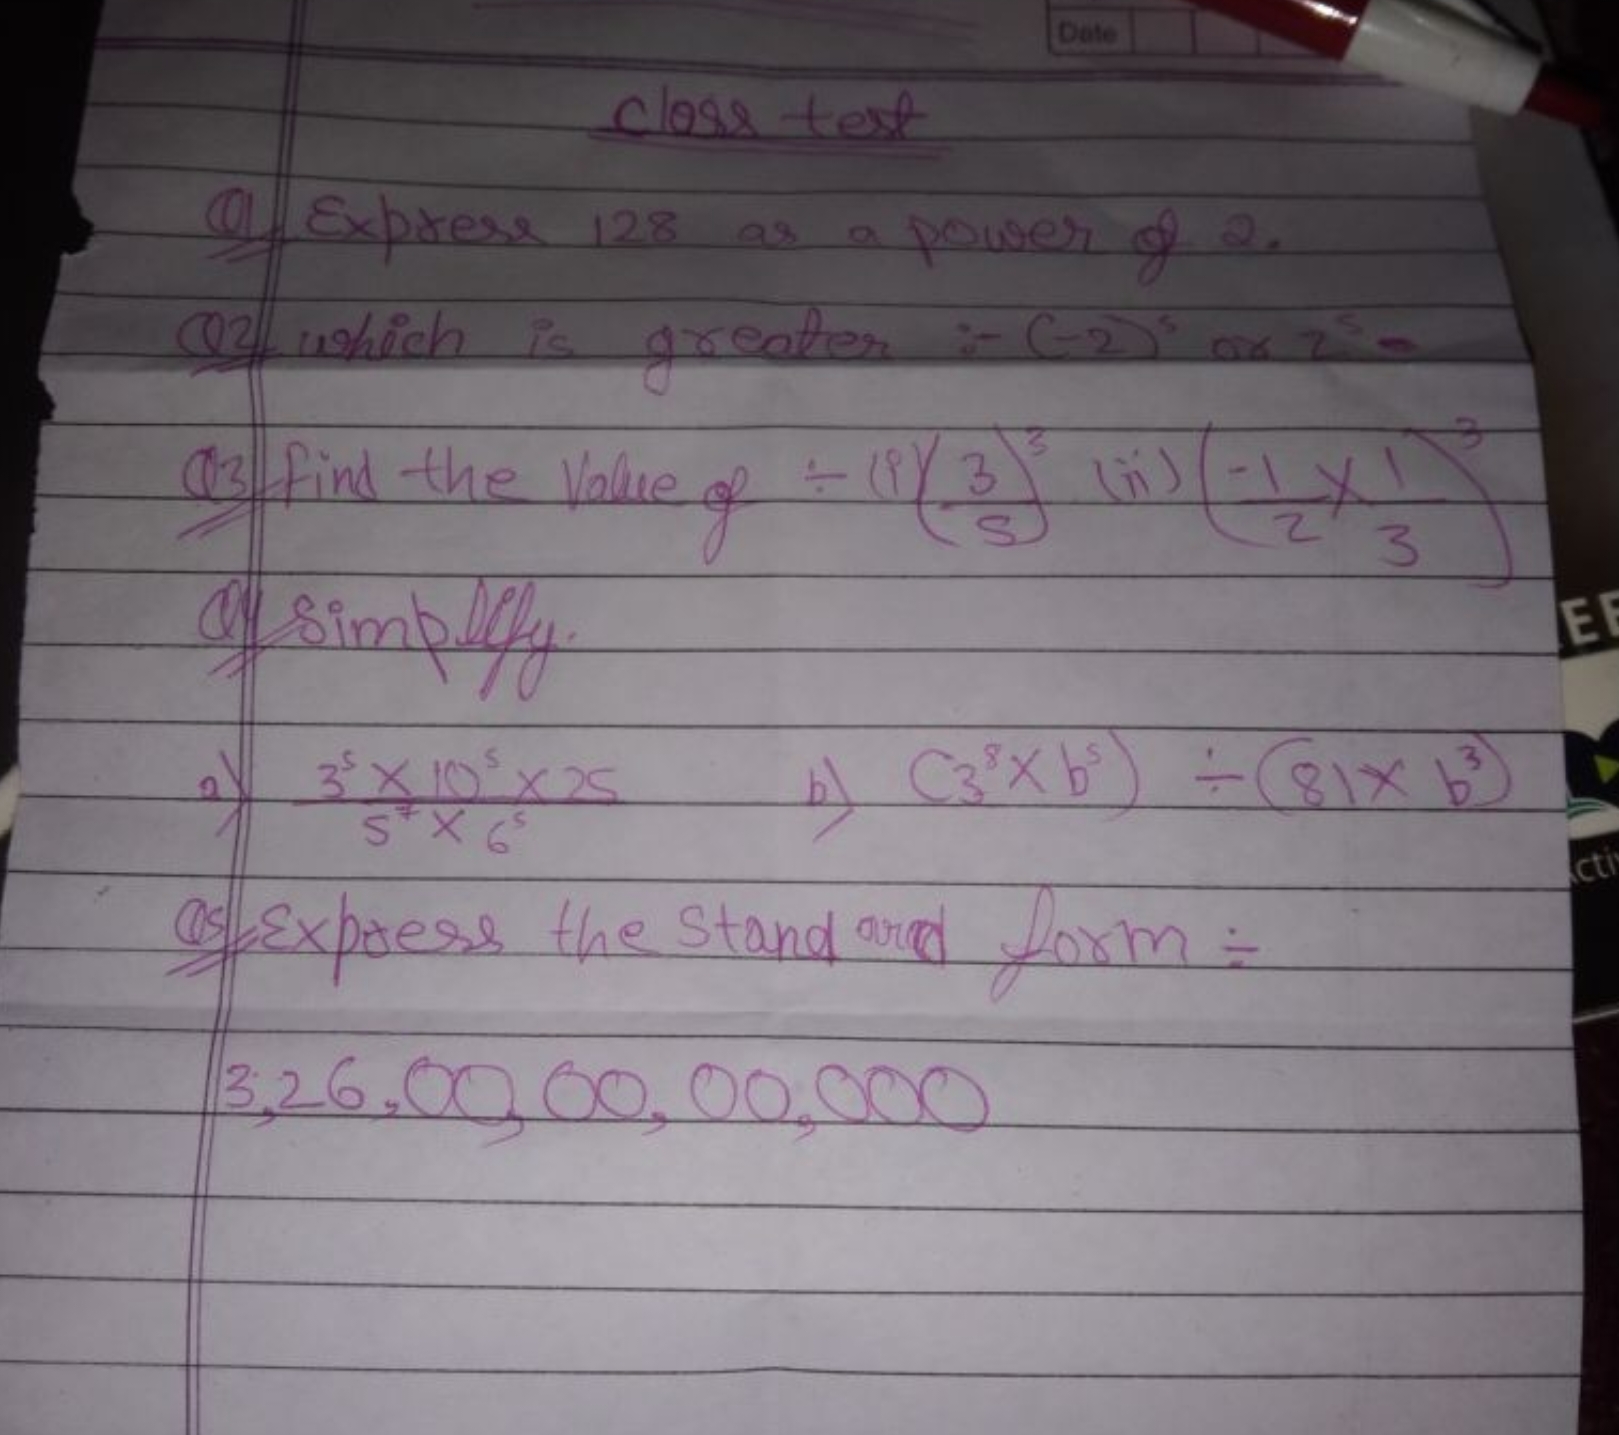 Date
Class test
Q1 Express 128 as a power of 2.
Q2 which is greater :- (-2)⁵ or 2⁵ -
Q3 find the Value of ÷ (i) (3/5)³ (ii) (-1/2 × 1/3)³
Q4 Simplify.
a) 3⁵ × 10⁵ × 25 / 5⁷ × 6⁵ b) (3⁸ × b⁵) ÷ (81 × b³)
Q5 Express the Standard form ÷
3,26,00,00,00,000